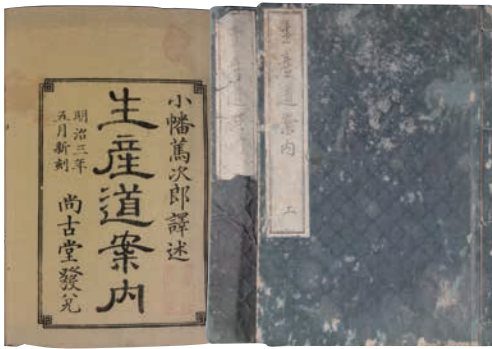 小幡篤次郎譯述
生産道案内
明治三年
五月新刻
尚古堂發兌
生産道案内
生産道案内 上